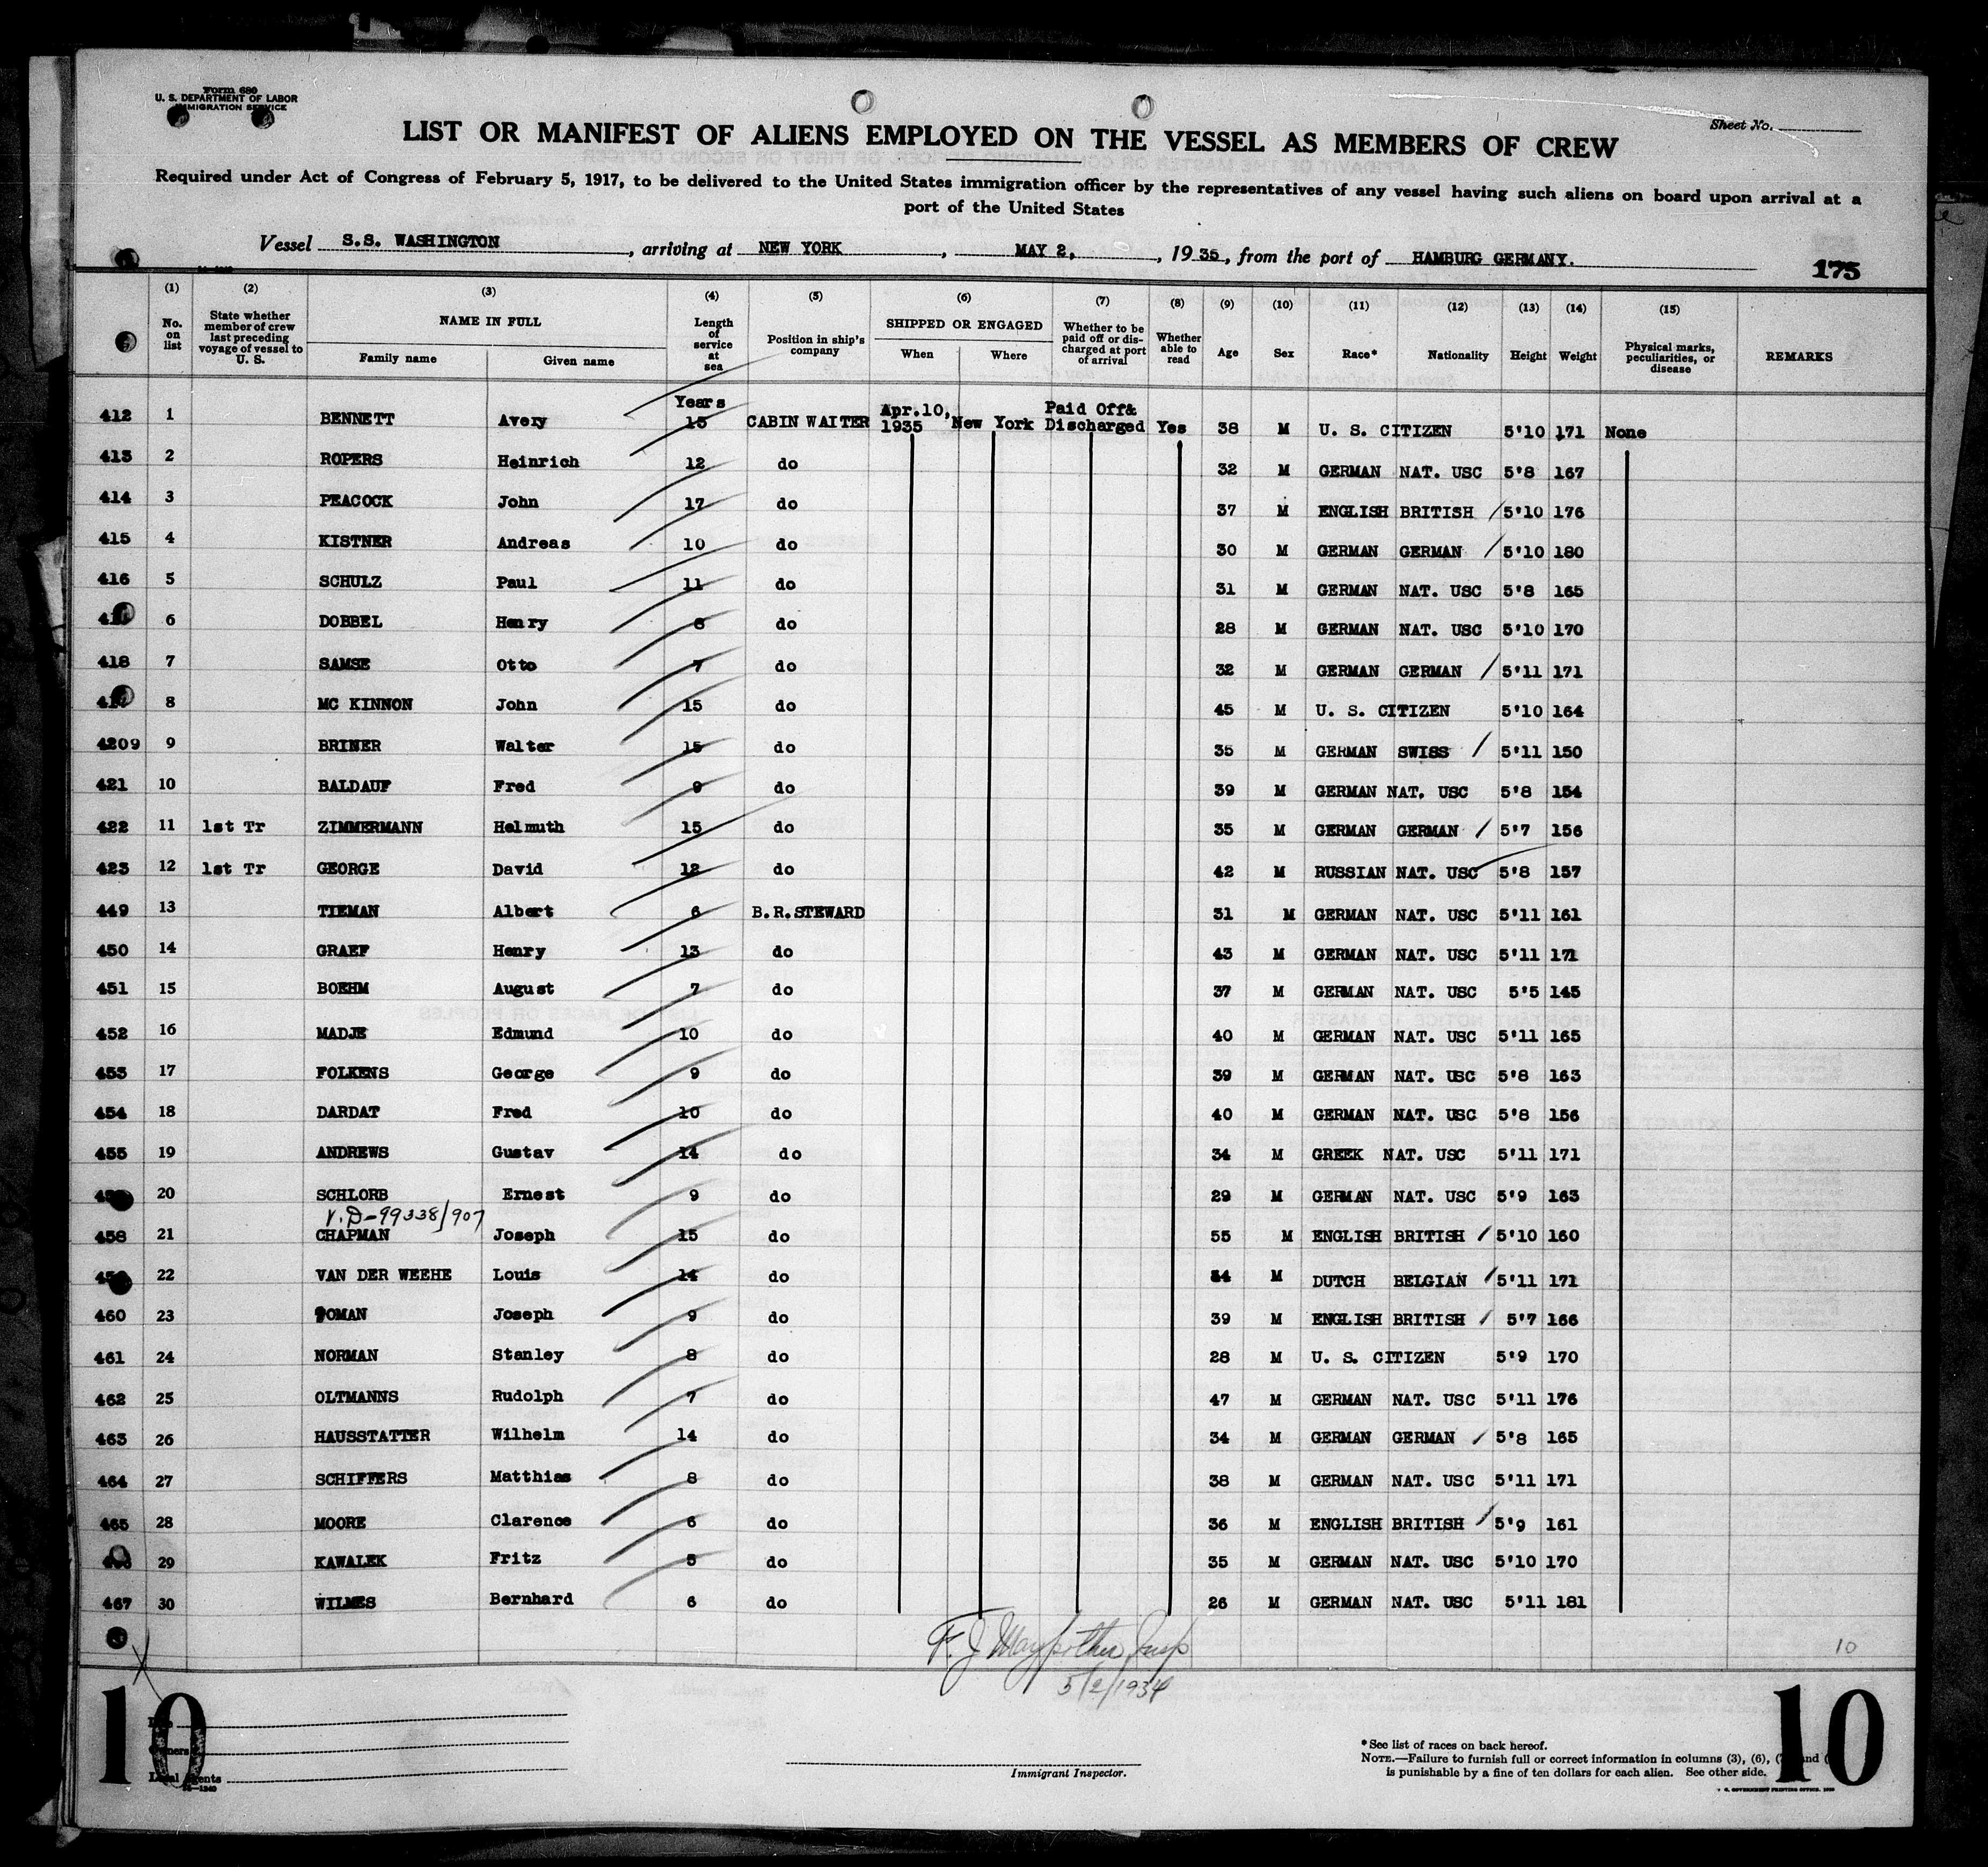 Form 680
U. S. DEPARTMENT OF LABOR
IMMIGRATION SERVICE
Sheet No.
LIST OR MANIFEST OF ALIENS EMPLOYED ON THE VESSEL AS MEMBERS OF CREW
Required under Act of Congress of February 5, 1917, to be delivered to the United States immigration officer by the representatives of any vessel having such aliens on board upon arrival at a
port of the United States
Vessel S.S. WASHINGTON, arriving at NEW YORK, MAY 2, 1935, from the port of HAMBURG GERMANY.
175
(1) No. on list (2) State whether member of crew last preceding voyage of vessel to U. S. (3) NAME IN FULL Family name Given name (4) Length of service at sea (5) Position in ship's company (6) SHIPPED OR ENGAGED When Where (7) Whether to be paid off or discharged at port of arrival (8) Whether able to read (9) Age (10) Sex (11) Race* (12) Nationality (13) Height (14) Weight (15) Physical marks, peculiarities, or disease REMARKS
412 1 BENNETT Avery Years 15 CABIN WAITER Apr.10, 1935 New York Paid Off& Discharged Yes 38 M U. S. CITIZEN 5'10 171 None
413 2 ROPERS Heinrich 12 do 32 M GERMAN NAT. USC 5'8 167
414 3 PEACOCK John 17 do 37 M ENGLISH BRITISH / 5'10 176
415 4 KISTNER Andreas 10 do 30 M GERMAN GERMAN / 5'10 180
416 5 SCHULZ Paul 11 do 31 M GERMAN NAT. USC 5'8 165
6 DOBBEL Henry 8 do 28 M GERMAN NAT. USC 5'10 170
418 7 SAMSE Otto 7 do 32 M GERMAN GERMAN / 5'11 171
8 MC KINNON John 15 do 45 M U. S. CITIZEN 5'10 164
4209 9 BRINER Walter 15 do 35 M GERMAN SWISS / 5'11 150
421 10 BALDAUF Fred 9 do 39 M GERMAN NAT. USC 5'8 154
422 11 1st Tr ZIMMERMANN Helmuth 15 do 35 M GERMAN GERMAN / 5'7 156
423 12 1st Tr GEORGE David 12 do 42 M RUSSIAN NAT. USC 5'8 157
449 13 TIEMAN Albert 6 B.R.STEWARD 31 M GERMAN NAT. USC 5'11 161
450 14 GRAEF Henry 13 do 43 M GERMAN NAT. USC 5'11 171
451 15 BOEHM August 7 do 37 M GERMAN NAT. USC 5'5 145
452 16 MADJE Edmund 10 do 40 M GERMAN NAT. USC 5'11 165
453 17 FOLKENS George 9 do 39 M GERMAN NAT. USC 5'8 163
454 18 DARDAT Fred 10 do 40 M GERMAN NAT. USC 5'8 156
455 19 ANDREWS Gustav 14 do 34 M GREEK NAT. USC 5'11 171
20 SCHLORB Ernest 9 do 29 M GERMAN NAT. USC 5'9 163
V.D-99338/907
458 21 CHAPMAN Joseph 15 do 55 M ENGLISH BRITISH / 5'10 160
22 VAN DER WEEHE Louis 14 do 34 M DUTCH BELGIAN / 5'11 171
460 23 Joseph 9 do 39 M ENGLISH BRITISH / 5'7 166
461 24 NORMAN Stanley 8 do 28 M U. S. CITIZEN 5'9 170
462 25 OLTMANNS Rudolph 7 do 47 M GERMAN NAT. USC 5'11 176
463 26 HAUSSTATTER Wilhelm 14 do 34 M GERMAN GERMAN / 5'8 165
464 27 SCHIFFERS Matthias 8 do 38 M GERMAN NAT. USC 5'11 171
465 28 MOORE Clarence 6 do 36 M ENGLISH BRITISH / 5'9 161
29 KAWALEK Fritz 5 do 35 M GERMAN NAT. USC 5'10 170
467 30 WILMES Bernhard 6 do 26 M GERMAN NAT. USC 5'11 181
F. J. Insp
5/2/1934
10
10
10
Local Agents
Immigrant Inspector.
*See list of races on back hereof.
NOTE.—Failure to furnish full or correct information in columns (3), (6), and
is punishable by a fine of ten dollars for each alien. See other side.